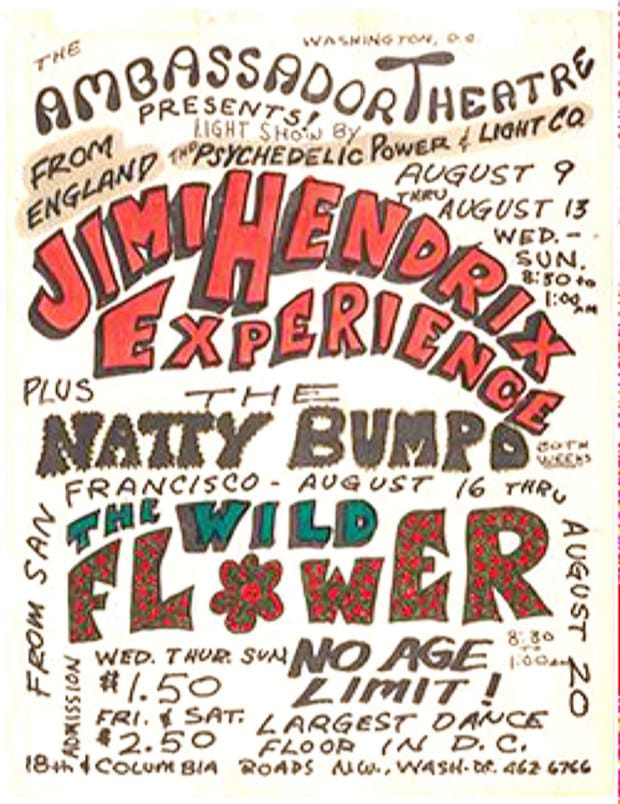 WASHINGTON, D.C.
THE
AMBASSADOR THEATRE
PRESENTS!
LIGHT SHOW BY
THE PSYCHEDELIC POWER & LIGHT CO.
FROM
ENGLAND
AUGUST 9
THRU
AUGUST 13
WED. -
SUN.
8:30 to
1:00 AM
JIMI HENDRIX
EXPERIENCE
PLUS
THE
NATTY BUMPO
BOTH
WEEKS
FROM SAN
FRANCISCO - AUGUST 16 THRU
AUGUST 20
THE WILD
FLOWER
8:30
TO
1:00 AM
ADMISSION
WED. THUR. SUN
$1.50
FRI. & SAT.
$2.50
NO AGE
LIMIT!
LARGEST DANCE
FLOOR IN D.C.
18th & COLUMBIA ROADS N.W., WASH. DC. 462-6766